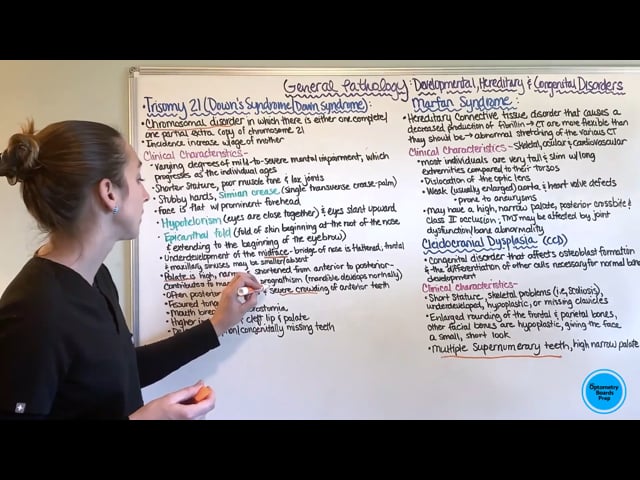 General Pathology: Developmental, Hereditary, & Congenital Disorders
Trisomy 21 (Down's Syndrome/Down syndrome):
• Chromosomal disorder in which there is either one complete/
one partial extra copy of chromosome 21
• Incidence increase w/age of mother
Clinical Characteristics-
• Varying degrees of mild-to-severe mental impairment, which
progresses as the individual ages
• Shorter Stature, poor muscle tone & lax joints
• Stubby hands, Simian crease (single transverse crease-palm)
• Face is flat w/prominent forehead
• Hypotelorism (eyes are close together) & eyes slant upward
• Epicanthal fold (fold of skin beginning at the root of the nose
& extending to the beginning of the eyebrow)
• Underdevelopment of the midface - bridge of nose is flattened, frontal
& maxillary sinuses may be smaller/absent
• Palate is high, narrow, shortened from anterior to posterior-
contributes to prognathism (mandible develops normally)
• Often posterior & severe crowding of anterior teeth
• Fissured
• Mouth
• Higher cleft lip & palate
congenitally missing teeth
Marfan Syndrome:
• Hereditary Connective tissue disorder that causes a
decreased production of fibrillin → CT are more flexible than
they should be → abnormal stretching of the various CT
Clinical Characteristics - Skeletal, ocular & cardiovascular
• most individuals are very tall & slim w/long
extremities compared to their torsos
• Dislocation of the optic lens
• Weak (usually enlarged) aorta & heart valve defects
- prone to aneurysms
• May have a high, narrow palate, posterior crossbite &
Class II occlusion; TMJ may be affected by joint
dysfunction/bone abnormality
Cleidocranial Dysplasia (CCD)
• Congenital disorder that affects osteoblast formation
& the differentiation of other cells necessary for normal bone
development
Clinical characteristics-
• Short Stature, Skeletal problems (i.e., Scoliosis),
underdeveloped, hypoplastic, or missing clavicles
• Enlarged rounding of the frontal & parietal bones,
other facial bones are hypoplastic, giving the face
a small, short look
• Multiple Supernumerary teeth, high narrow palate
Optometry
Boards
Prep